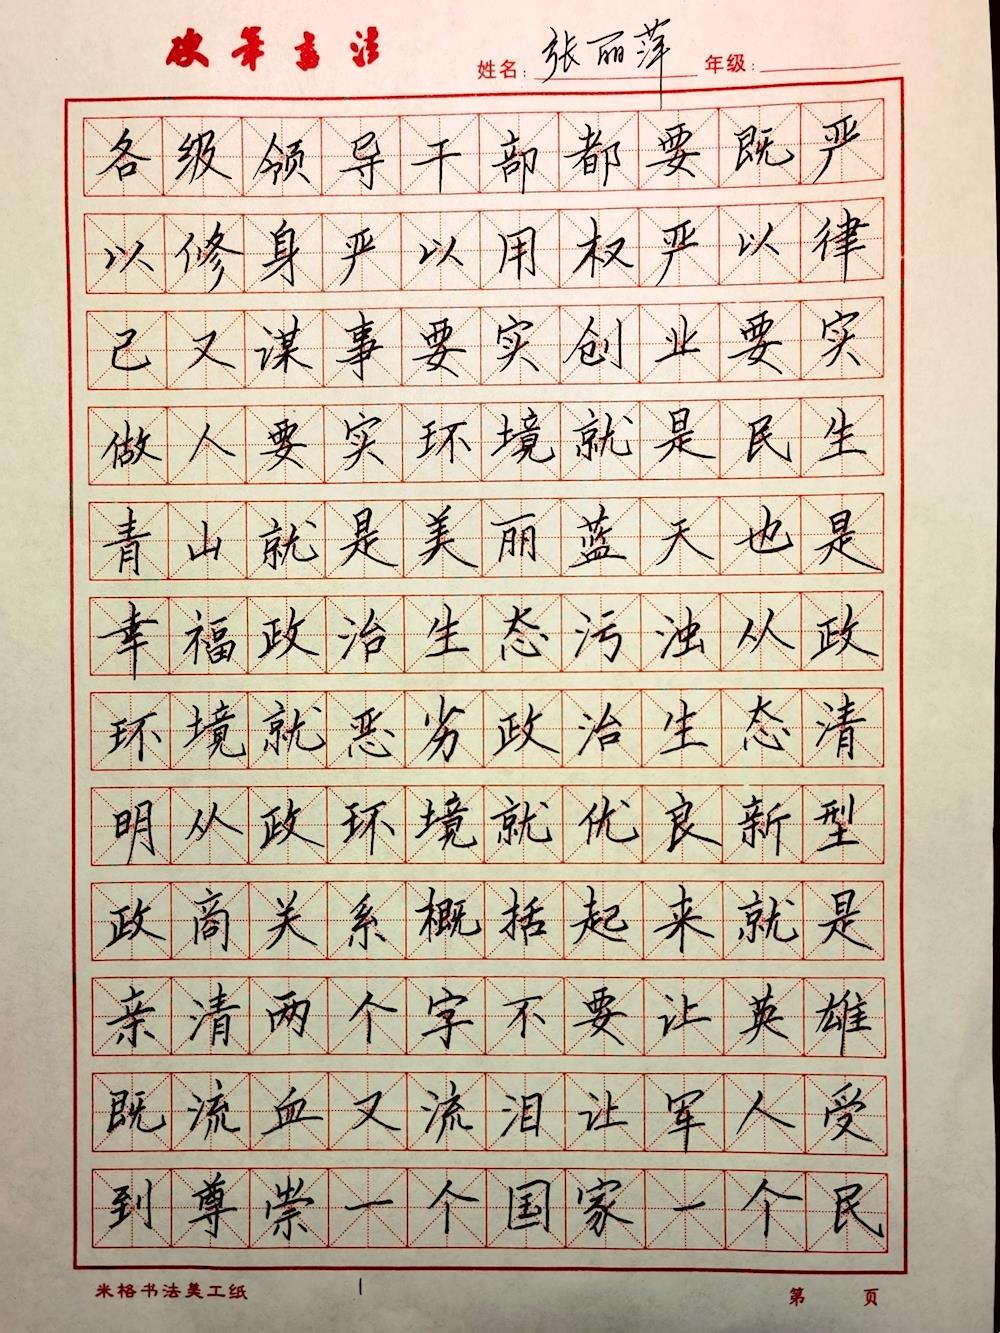 硬笔书法
姓名：张丽萍 年级：
各级领导干部都要既严
以修身严以用权严以律
己又谋事要实创业要实
做人要实环境就是民生
青山就是美丽蓝天也是
幸福政治生态污浊从政
环境就恶劣政治生态清
明从政环境就优良新型
政商关系概括起来就是
亲清两个字不要让英雄
既流血又流泪让军人受
到尊崇一个国家一个民
米格书法美工纸 1 第 页